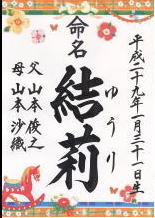 平成二十九年一月三十一日生
命名
結莉
ゆうり
父 山本俊之
母 山本沙織